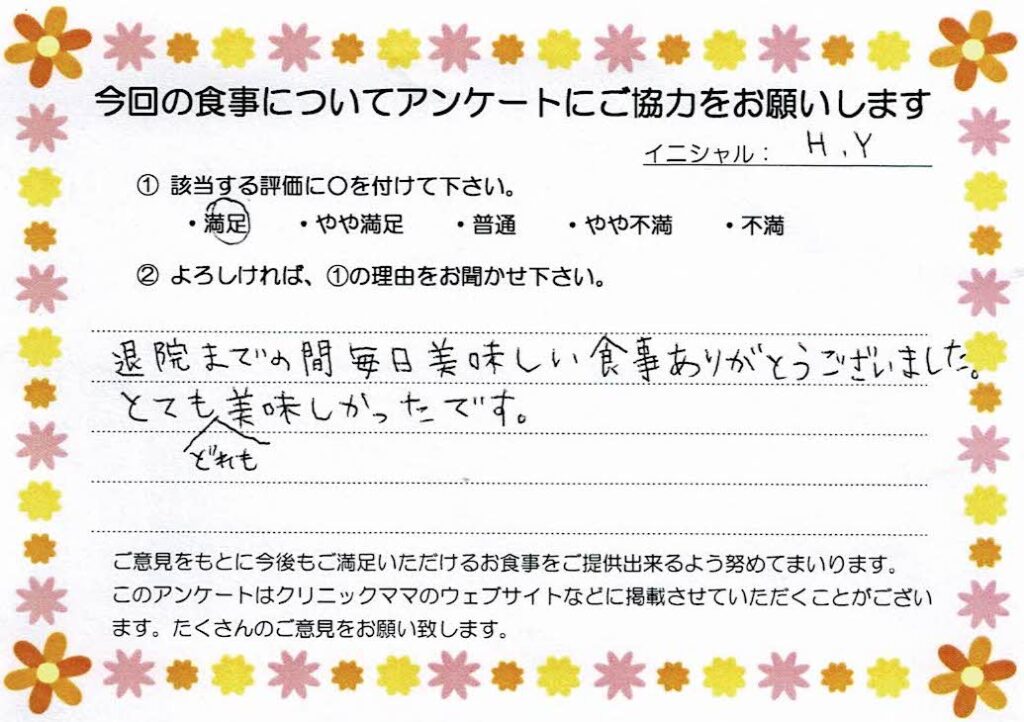 今回の食事についてアンケートにご協力をお願いします
イニシャル： H.Y
① 該当する評価に〇を付けて下さい。
・満足 ・やや満足 ・普通 ・やや不満 ・不満
② よろしければ、①の理由をお聞かせ下さい。
退院までの間毎日美味しい食事ありがとうございました。
とても美味しかったです。
どれも
ご意見をもとに今後もご満足いただけるお食事をご提供出来るよう努めてまいります。
このアンケートはクリニックママのウェブサイトなどに掲載させていただくことがござい
ます。たくさんのご意見をお願い致します。